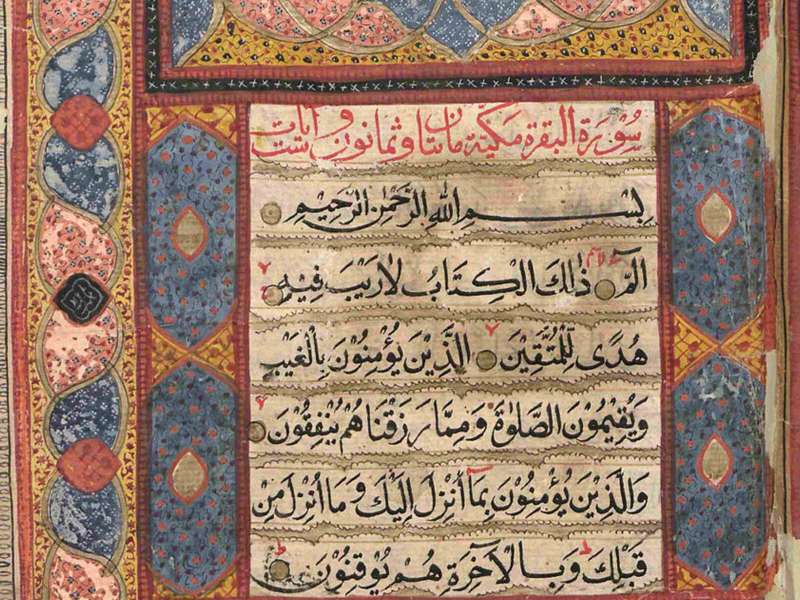 سورة البقرة مكية مائتان وثمانون و ايات ست
بسم الله الرحمن الرحيم
الٓمّٓ ذٰلِكَ الْكِتَابُ لَا رَيْبَ فِيهِ
هُدًى لِلْمُتَّقِينَ الَّذِينَ يُؤْمِنُونَ بِالْغَيْبِ
وَيُقِيمُونَ الصَّلٰوةَ وَمِمَّا رَزَقْنَاهُمْ يُنْفِقُونَ
وَالَّذِينَ يُؤْمِنُونَ بِمَآ أُنْزِلَ إِلَيْكَ وَمَا أُنْزِلَ مِنْ
قَبْلِكَ وَبِالْآخِرَةِ هُمْ يُوقِنُونَ